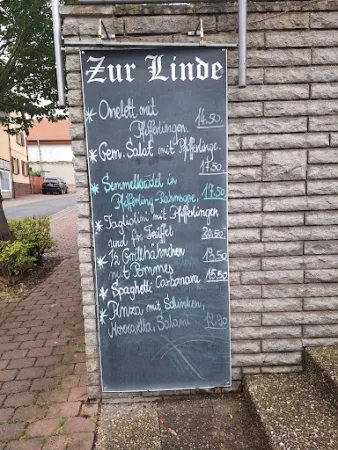 Zur Linde
* Omelett mit
Pfifferlingen. 14.50
* Gem. Salat mit Pfifferlinge.
17.50
* Semmelknödel in
Pfifferling-Rahmsope. 17.50
* Tagliolini mit Pfifferlingen
und fr. Trüffel 20.50
* ½ Grillhähnchen 13.50
mit Pommes
* Spaghetti Carbonara 15.50
* Pinza mit Schinken,
Mozzarella, Salami